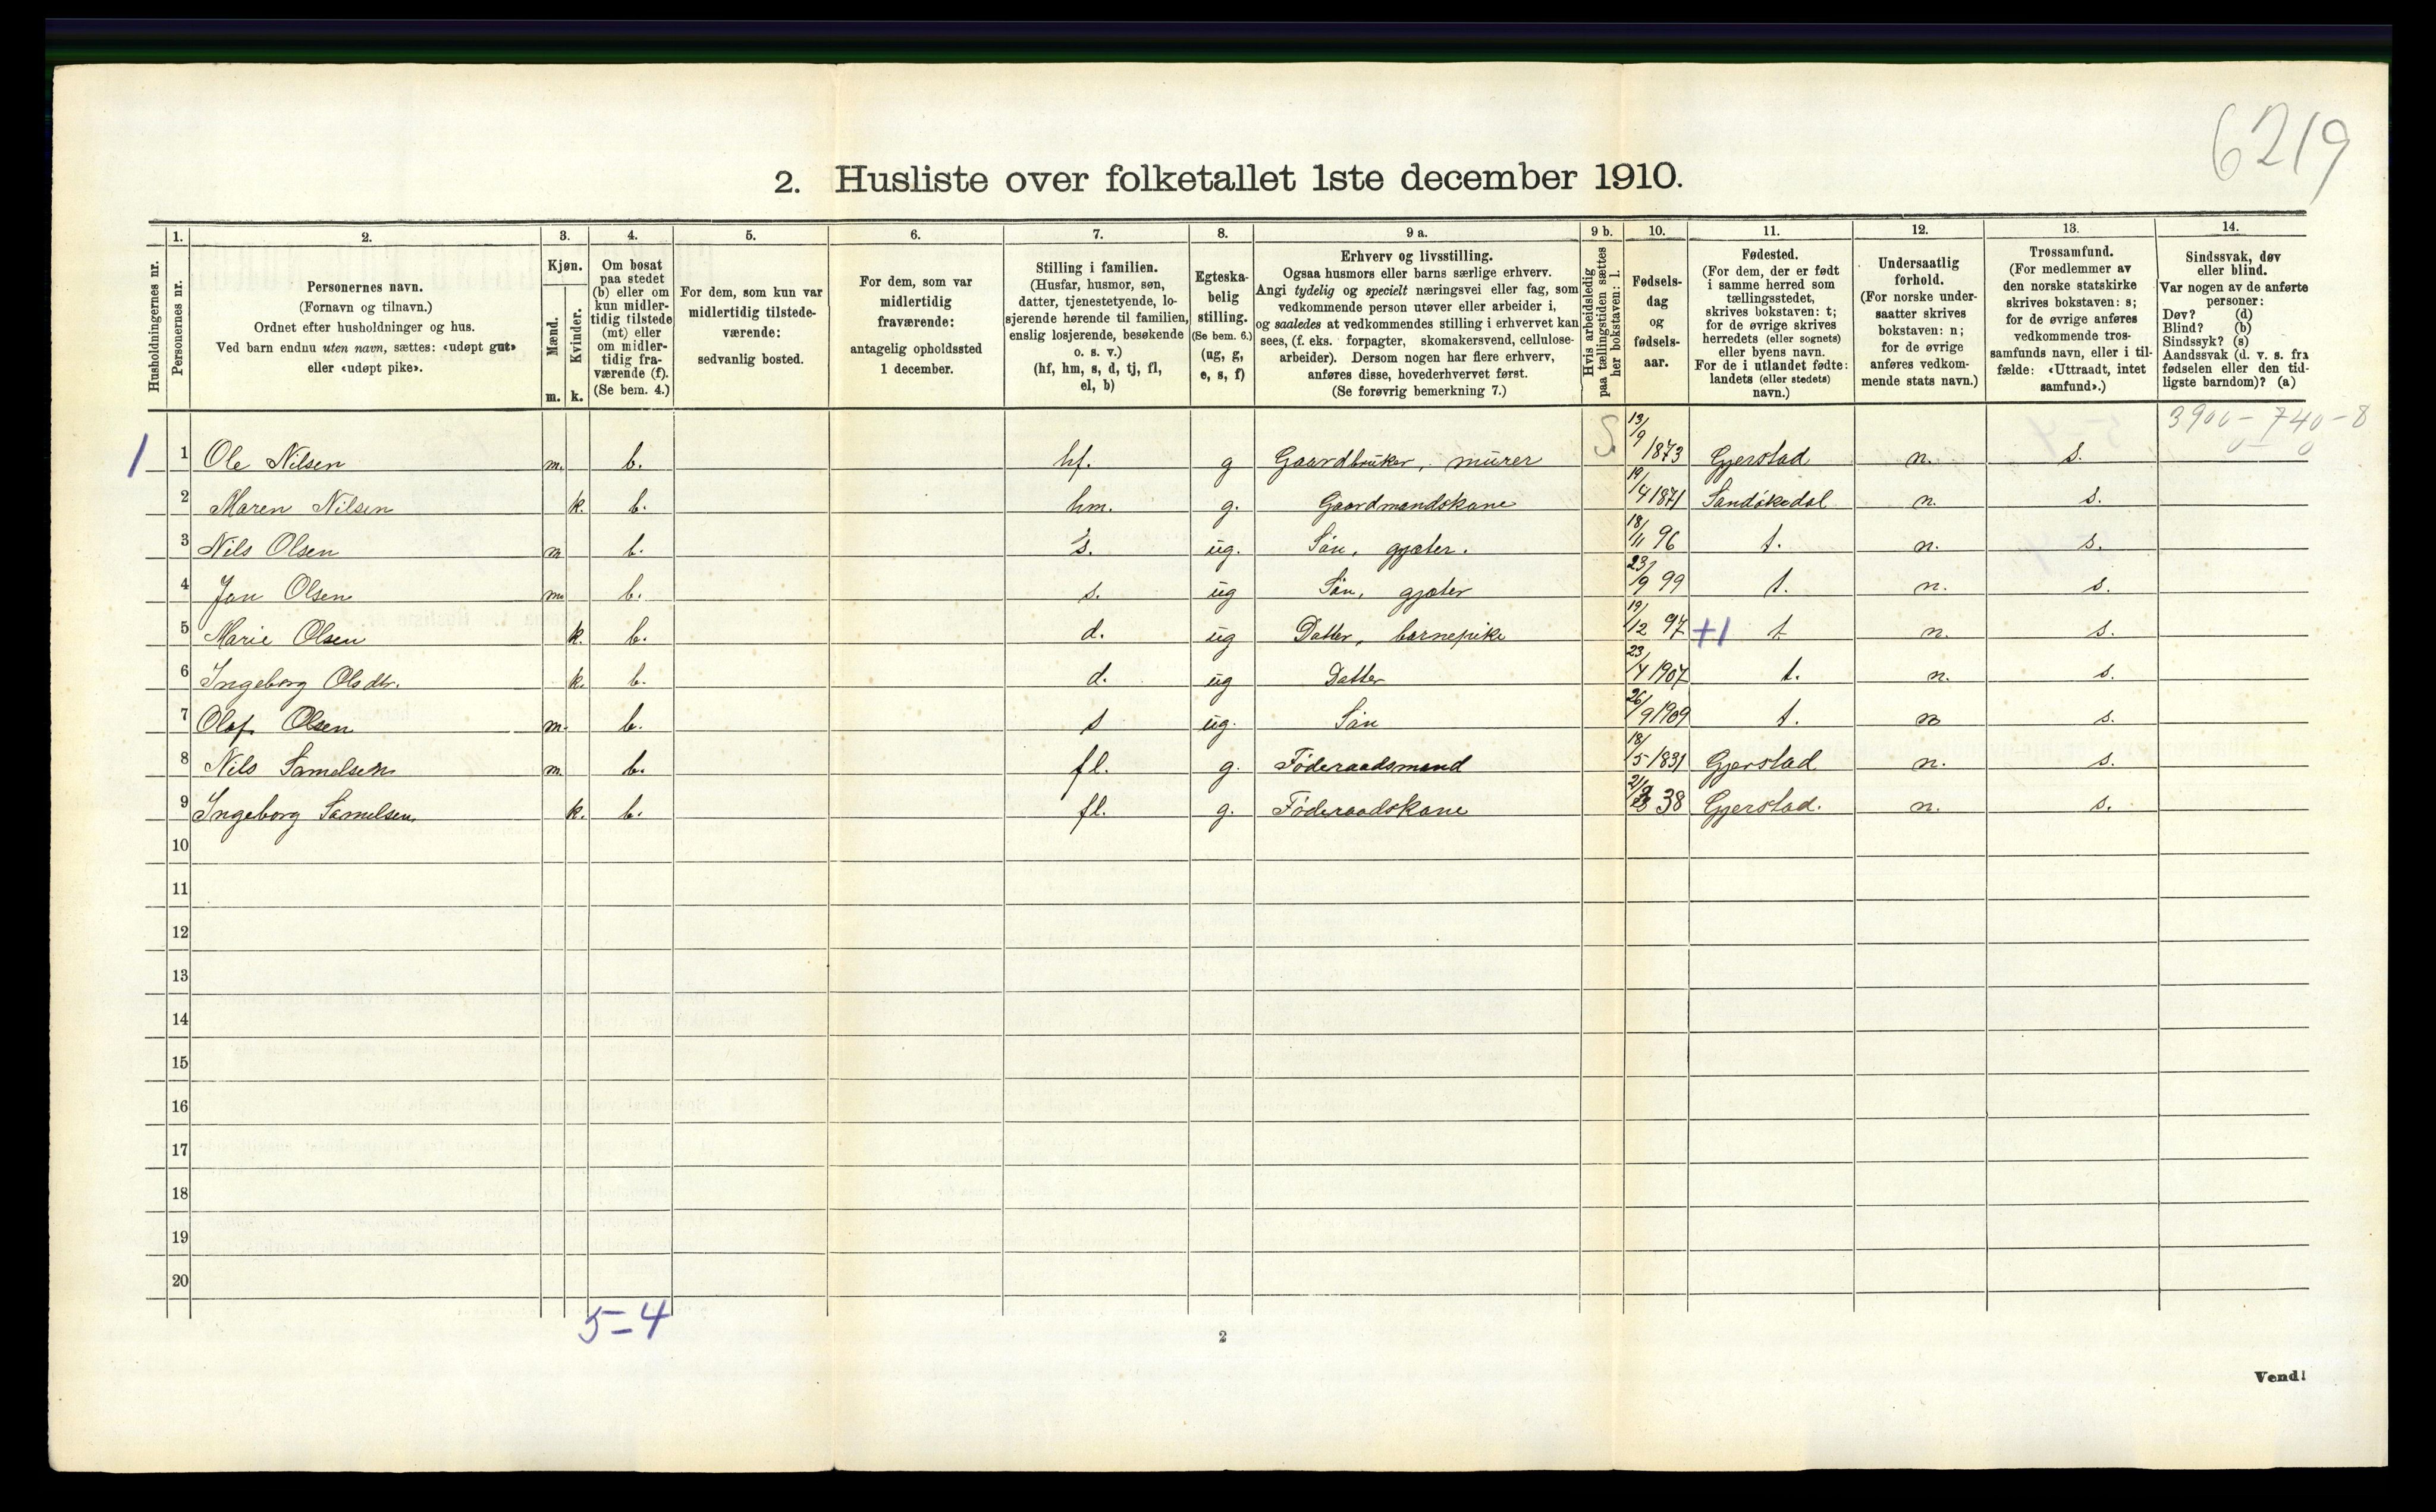 6219
2. Husliste over folketallet 1ste december 1910.
Husholdningernes nr.
1.
Personernes nr.
2.
Personernes navn.
(Fornavn og tilnavn.)
Ordnet efter husholdninger og hus.
Ved barn endnu uten navn, sættes: «udøpt gut»
eller «udøpt pike».
3.
Kjøn.
Mænd.
Kvinder.
m. k.
4.
Om bosat
paa stedet
(b) eller om
kun midler-
tidig tilstede
(mt) eller
om midler-
tidig fra-
værende (f).
(Se bem. 4.)
5.
For dem, som kun var
midlertidig tilstede-
værende:
sedvanlig bosted.
6.
For dem, som var
midlertidig
fraværende:
antagelig opholdssted
1 december.
7.
Stilling i familien.
(Husfar, husmor, søn,
datter, tjenestetyende, lo-
sjerende hørende til familien,
enslig losjerende, besøkende
o. s. v.)
(hf, hm, s, d, tj, fl,
el, b)
8.
Egteska-
belig
stilling.
(Se bem. 6.)
(ug, g,
e, s, f)
9 a.
Erhverv og livsstilling.
Ogsaa husmors eller barns særlige erhverv.
Angi tydelig og specielt næringsvei eller fag, som
vedkommende person utøver eller arbeider i,
og saaledes at vedkommendes stilling i erhvervet kan
sees, (f. eks. forpagter, skomakersvend, cellulose-
arbeider). Dersom nogen har flere erhverv,
anføres disse, hovederhvervet først.
(Se forøvrig bemerkning 7.)
9 b.
Hvis arbeidsledig
paa tællingstiden sættes
her bokstaven: l.
10.
Fødsels-
dag
og
fødsels-
aar.
11.
Fødested.
(For dem, der er født
i samme herred som
tællingsstedet,
skrives bokstaven: t;
for de øvrige skrives
herredets (eller sognets)
eller byens navn.
For de i utlandet fødte:
landets (eller stedets)
navn.)
12.
Undersaatlig
forhold.
(For norske under-
saatter skrives
bokstaven: n;
for de øvrige
anføres vedkom-
mende stats navn.)
13.
Trossamfund.
(For medlemmer av
den norske statskirke
skrives bokstaven: s;
for de øvrige anføres
vedkommende tros-
samfunds navn, eller i til-
fælde: «Uttraadt, intet
samfund».)
14.
Sindssvak, døv
eller blind.
Var nogen av de anførte
personer:
Døv? (d)
Blind? (b)
Sindssyk? (s)
Aandssvak (d. v. s. fra
fødselen eller den tid-
ligste barndom)? (a)
3900 - 740 - 8
0 - 0
1 1 Ole Nilsen m. b. hf. g Gaardbruker, murer S. 13/9 1873 Gjerstad n. s.
2 Maren Nilsen k. b. hm. g. Gaardmandskone 19/4 1871 Sandøkedal n. s.
3 Nils Olsen m b. s. ug. Søn, gjæter. 18/11 96 t. n. s.
4 Jan Olsen m. b. s. ug Søn, gjæter 23/9 99 t. n. s.
5 Marie Olsen k. b. d. ug Datter, barnepike 19/12 97 +1 t n. s.
6 Ingeborg Olsdtr. k. b. d. ug Datter 23/4 1907 t. n. s.
7 Olaf Olsen m. b. s ug. Søn 26/9 1909 t. n s.
8 Nils Samelsen m. b. fl. g. Føderaadsmand 18/5 1831 Gjerstad n. s.
9 Ingeborg Samelsen. k. b. fl. g. Føderaadskone 38 Gjerstad. n. s.
10
11
12
13
14
15
16
17
18
19
20
5-4
2
Vend!